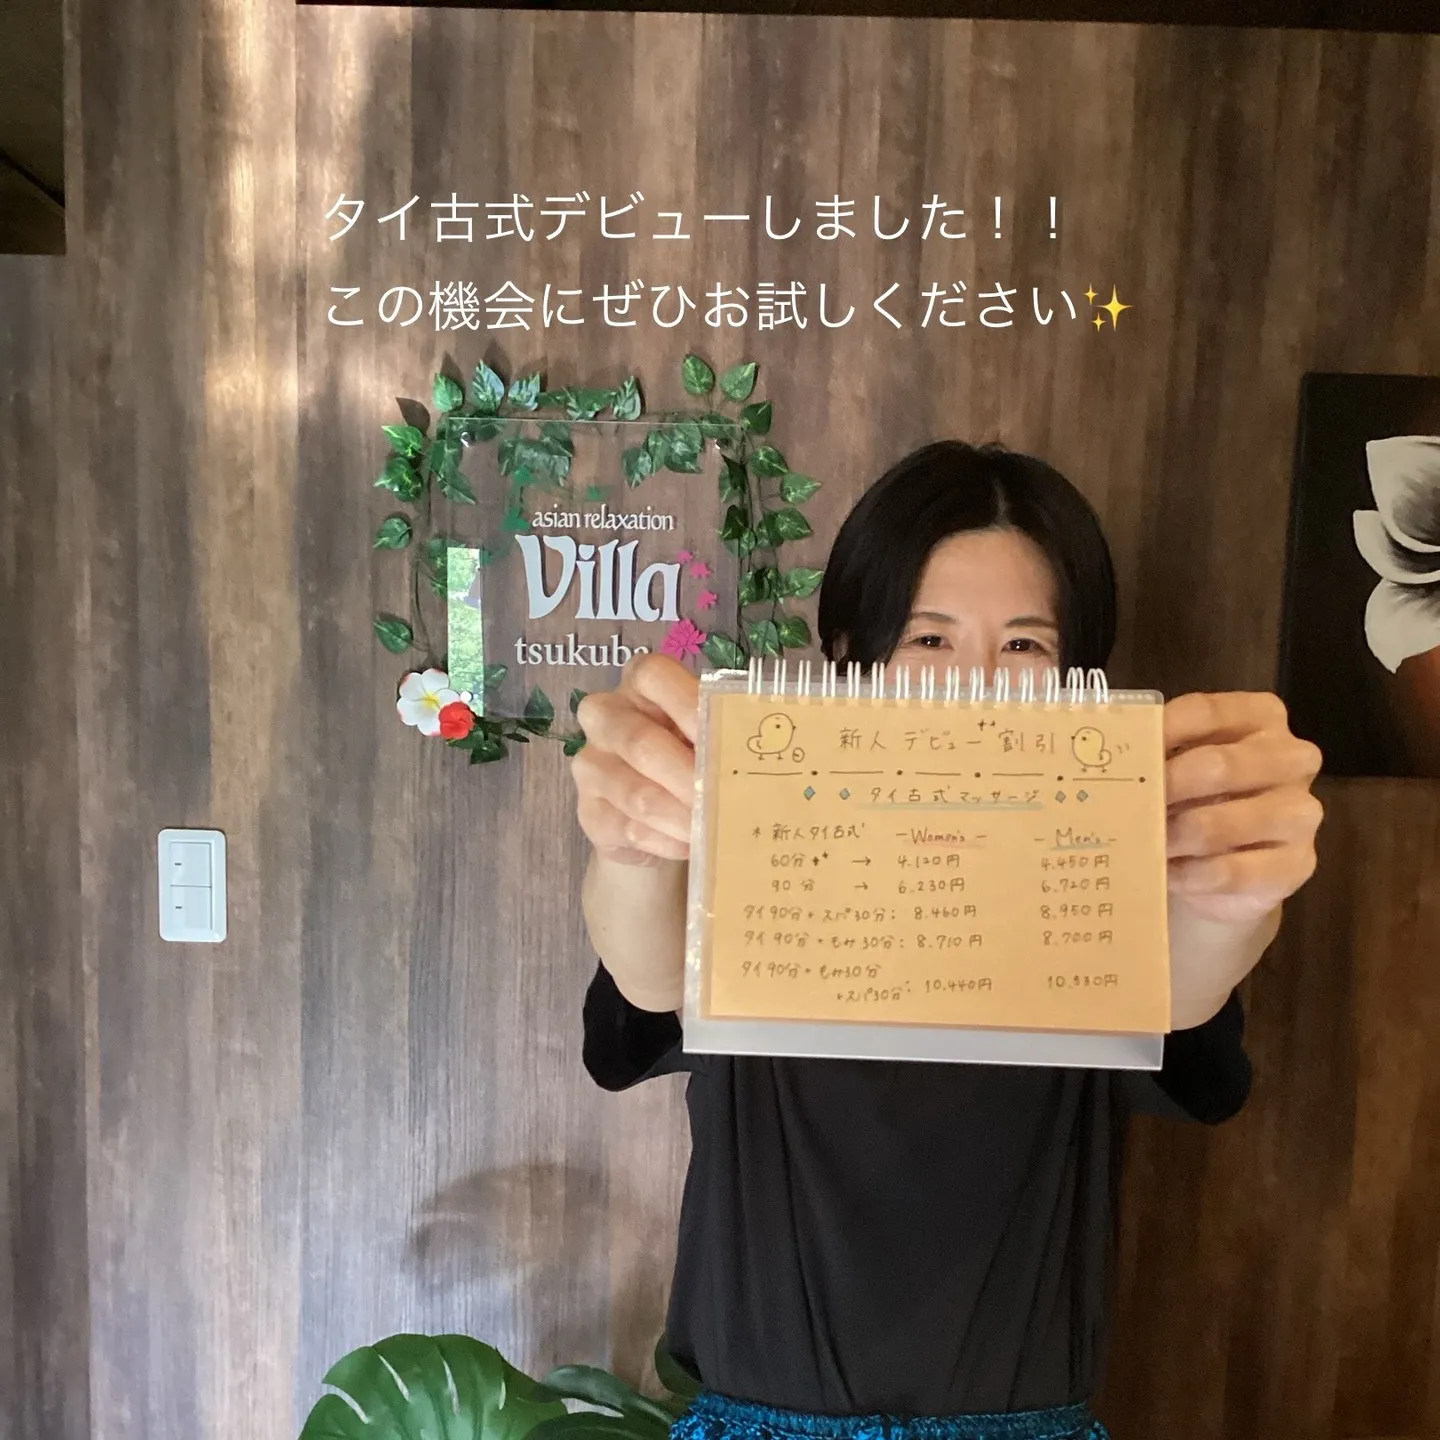 タイ古式デビューしました！！
この機会にぜひお試しください✨
asian relaxation
Villa
tsukuba
新人デビュー割引
タイ古式マッサージ
* 新人タイ古式 -Women's- -Men's-
60分 → 4.120円 4.450円
90分 → 6.230円 6.720円
タイ90分+スパ30分: 8.460円 8.950円
タイ90分+もみ30分: 8.710円 8.700円
タイ90分+もみ30分
+スパ30分: 10.440円 10.530円